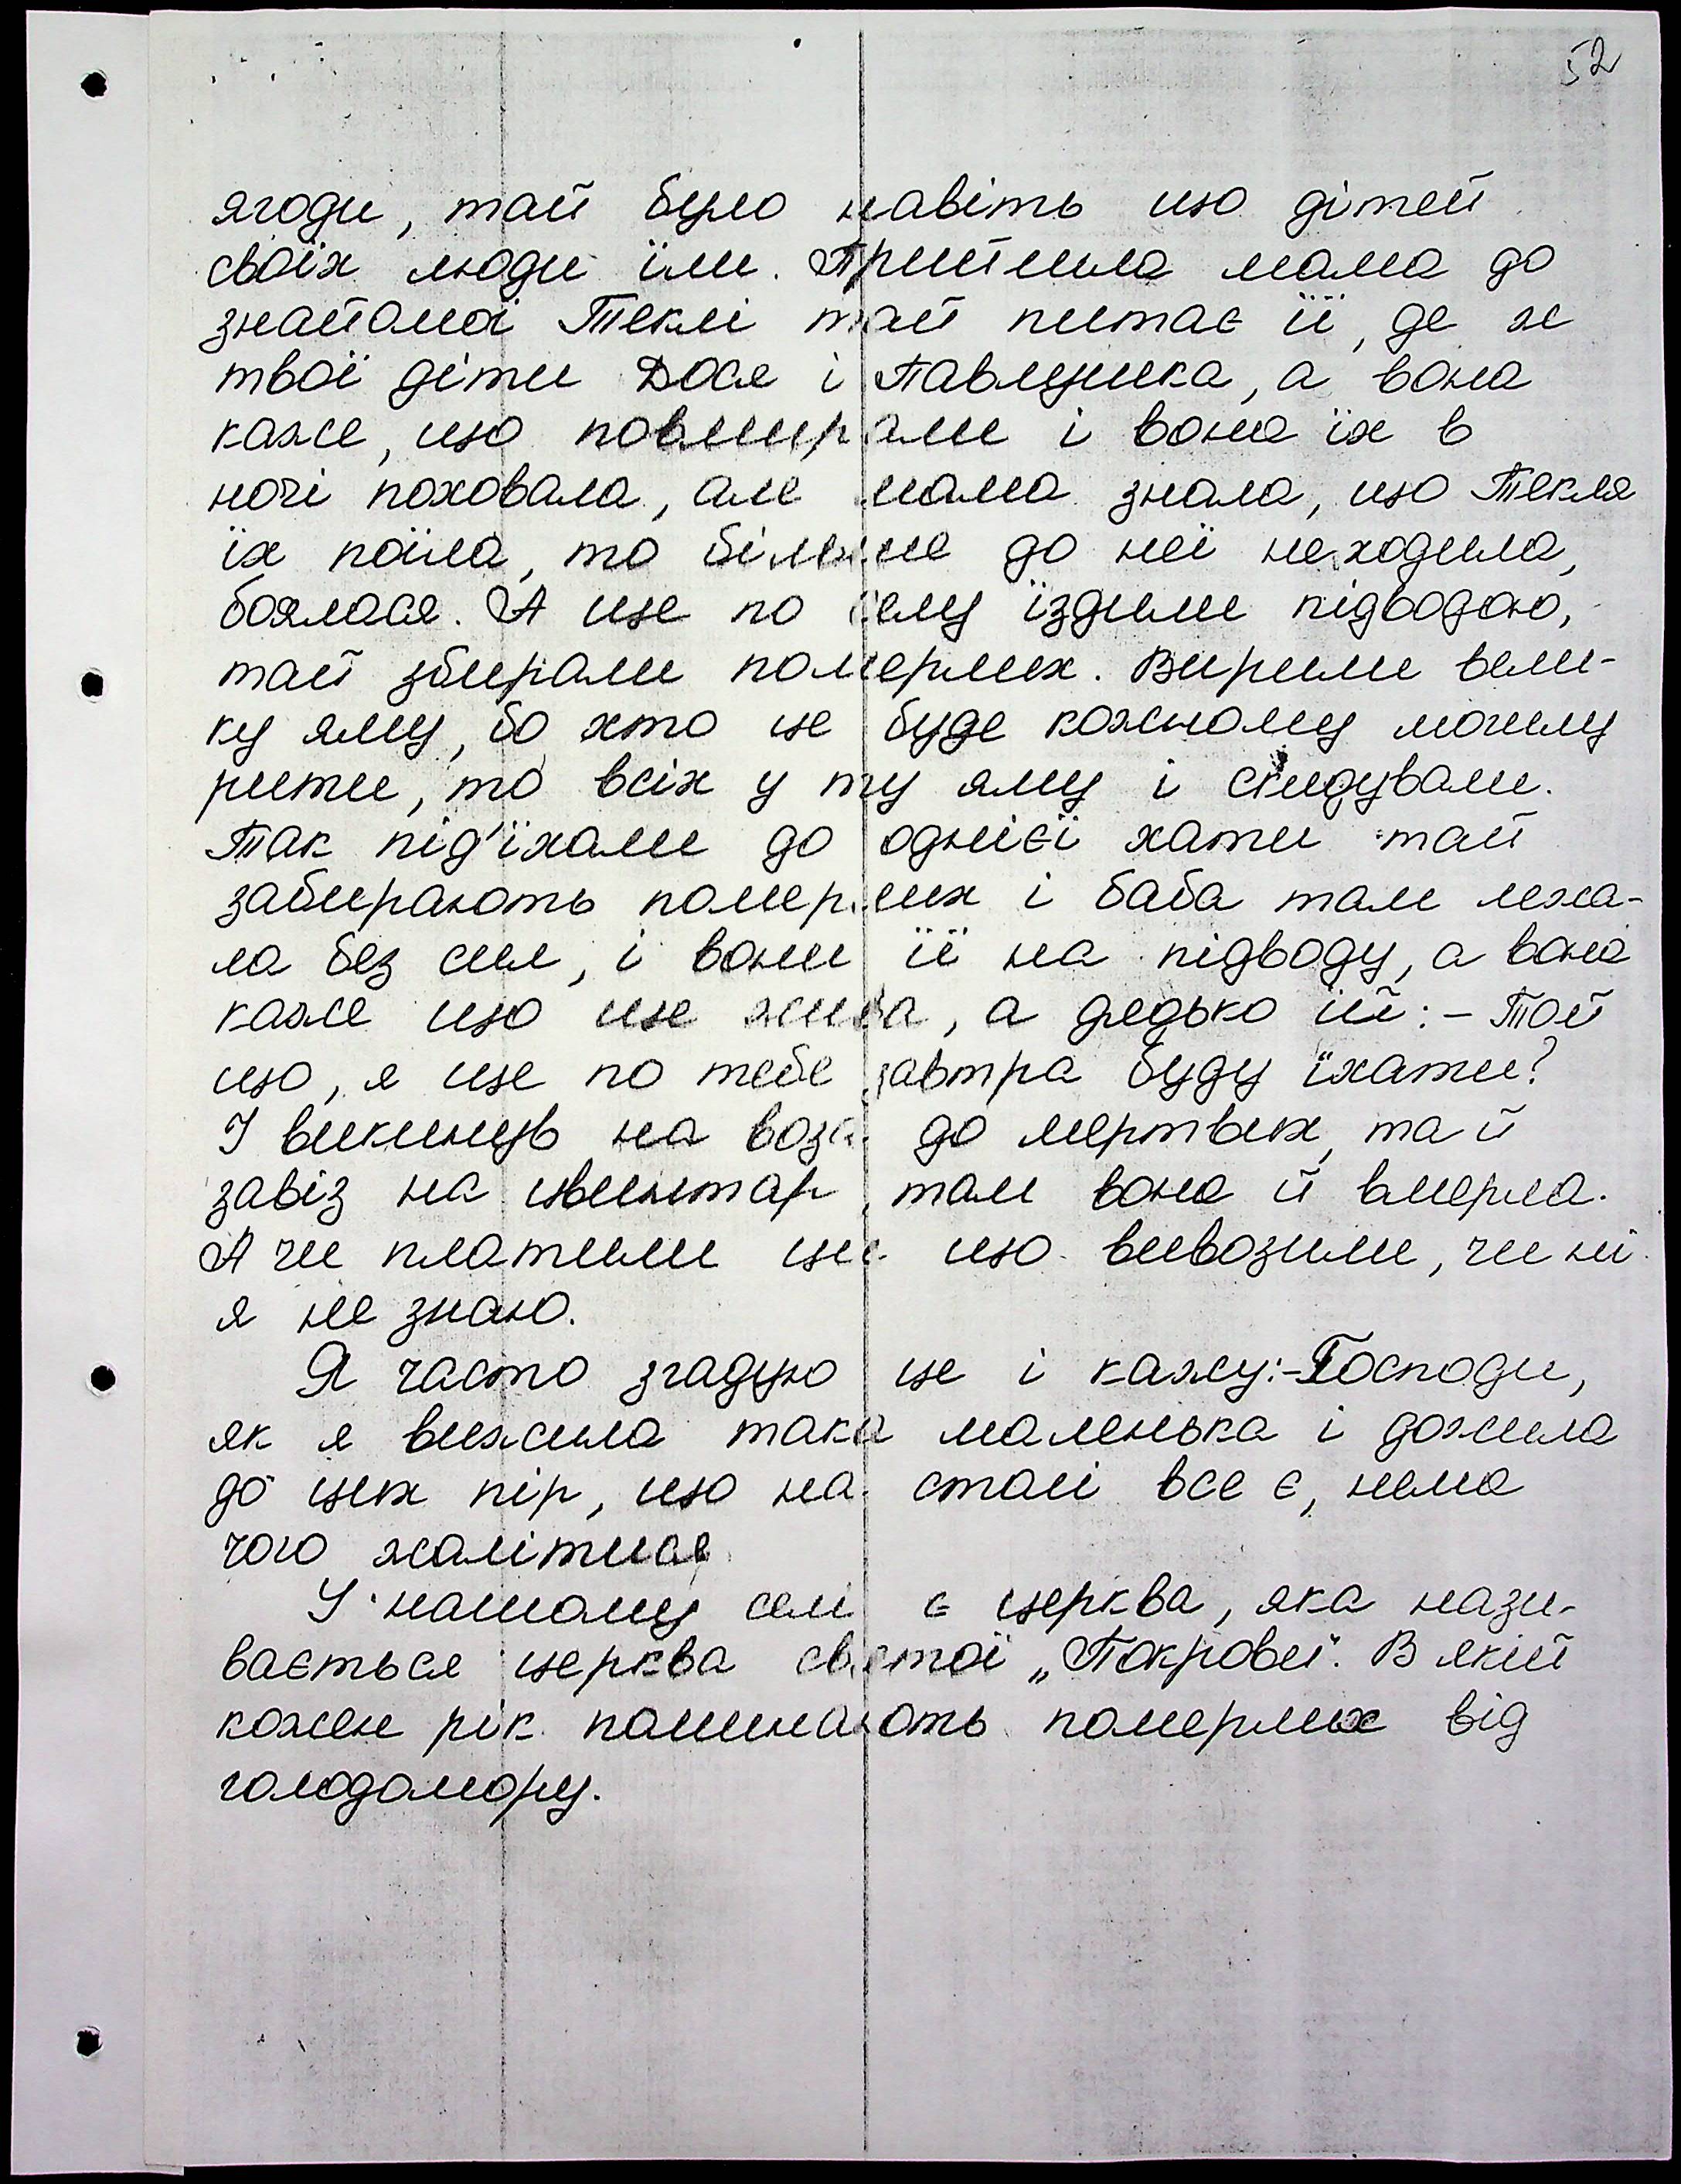 52
ягоди, тай було навіть що дітей
своїх люди їли. Прийшла мама до
знайомої Теклі тай питає її, де ж
твої діти Дося і Павлушка, а вона
каже, що повмирали і вона їх в
ночі поховала, але мама знала, що Текля
їх поїла, то більше до неї не ходила,
боялася. А ще по селу їздили підводою,
тай збирали померлих. Вирили вели-
ку яму, бо хто це буде кожному могилу
рити, то всіх у ту яму і скидували.
Так під'їхали до однієї хати тай
забирають померлих і баба там лежа-
ла без сил, і вони її на підводу, а вона
каже що ще жива, а дядько їй: - Той
що, я ще по тебе завтра буду їхати?
І викинув на воза до мертвих, та й
завіз на цвинтар, там вона й вмерла.
А чи платили цим що вивозили, чи ні
я не знаю.
Я часто згадую це і кажу:-Господи,
як я вижила така маленька і дожила
до цих пір, що на столі все є, нема
чого жалітися
У нашому селі є церква, яка нази-
вається церква святої „Покрови". В якій
кожен рік поминають померлих від
голодомору.